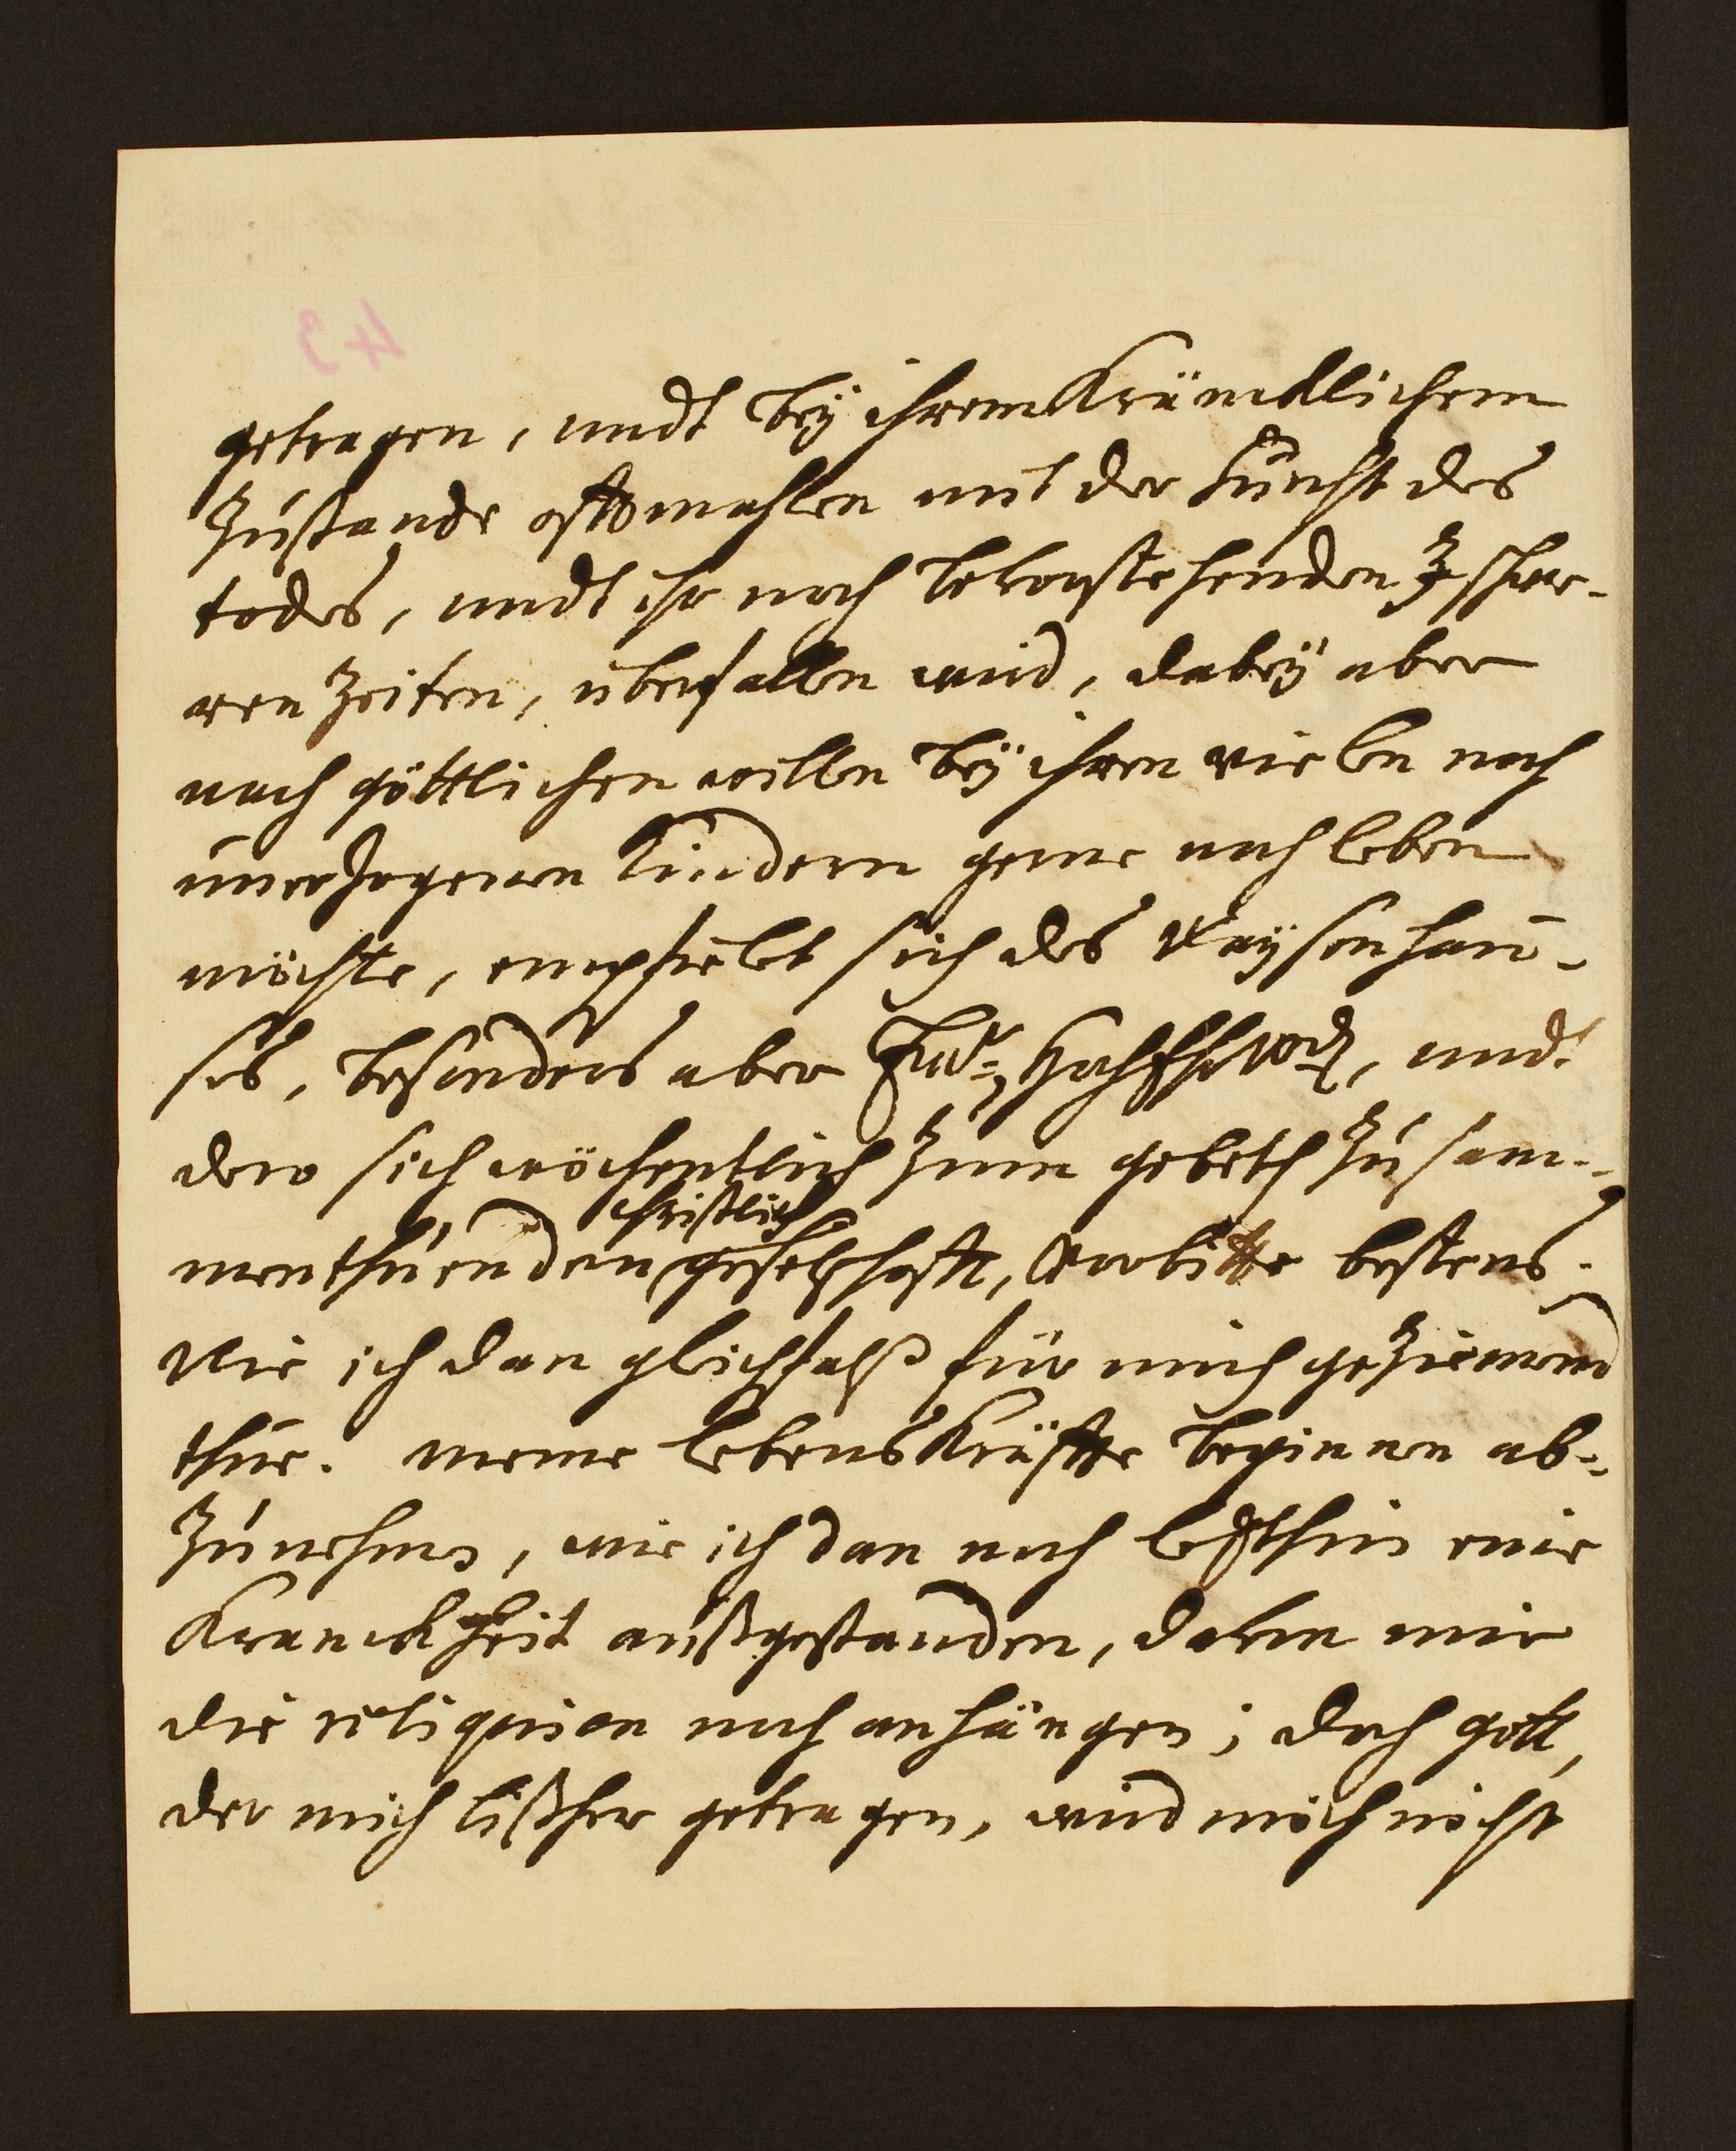 getragen, undt beÿ ihrem Kräncklichem
Zustande offtmahlen mit der furcht des
todes, undt ihr noch bevorstehenden schwe-
ren Zeiten, überfallen wird, dabeÿ aber
nach göttlichen willen beÿ ihren vielen noch
unerzogenen Kindern gerne noch leben
möchte, empfielet sich des Waÿsenhau-
ses, besonders aber Ew: HochEhrw, und
dero sich wöchentlich Zum gebeth Zusam-
menthuenden christlich geselschafft, Vorbitte bestens.
Wie ich dan gleichfalß für mich geziemend
thue. meine lebensKräffte beginnen ab-
Zunehmen, wie ich dan noch letzthin eine
Kranckheit außgestanden, davon mir
die reliquien noch anhängen; doch gott,
der mich bißher getragen, wird mich nicht
43